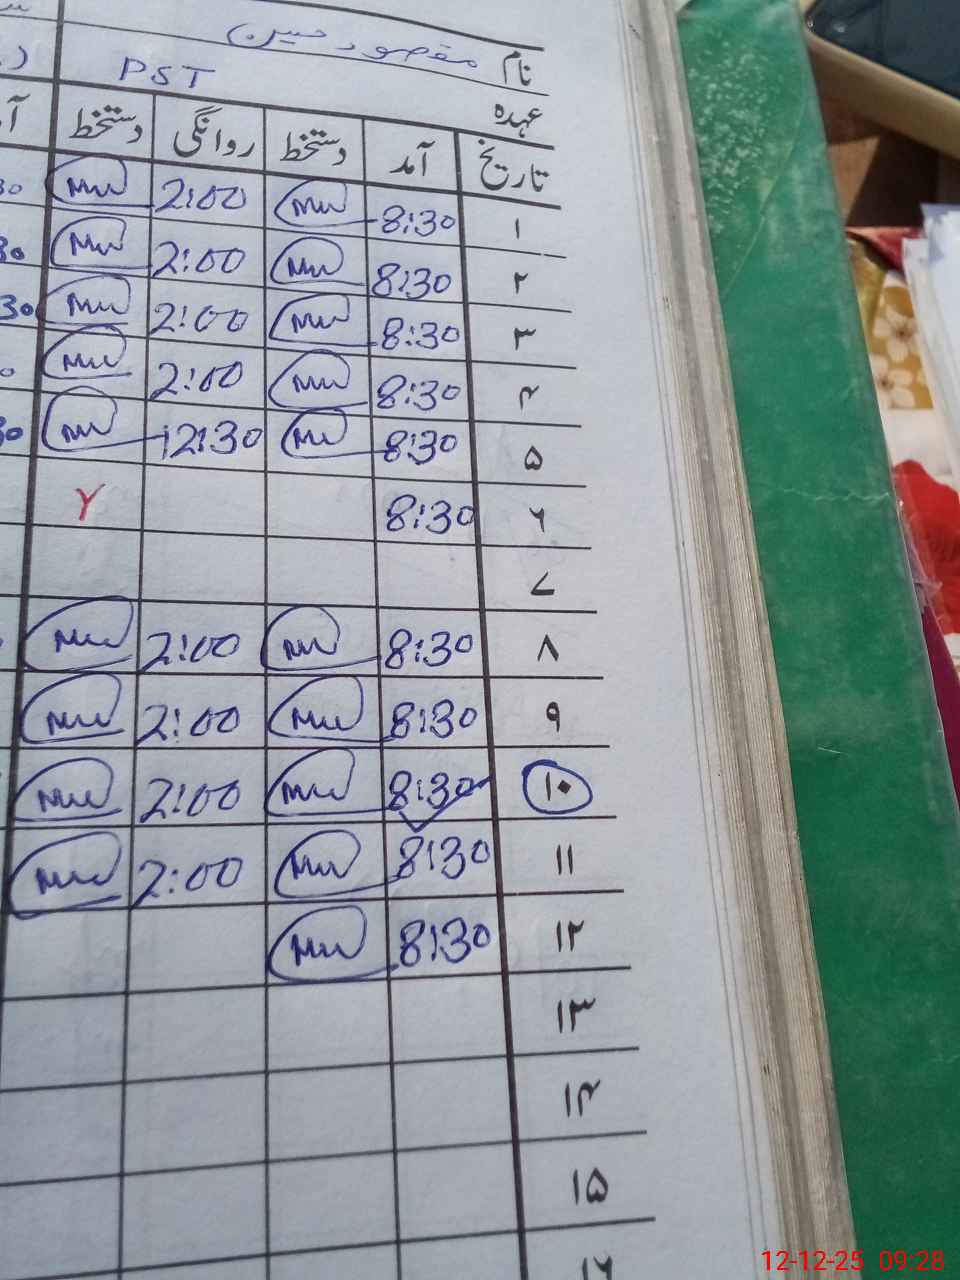 نام مقصود حسین
عہدہ PST
تاریخ آمد دستخط روانگی دستخط
۱ 8:30 2:00
۲ 8:30 2:00
۳ 8:30 2:00
۴ 8:30 2:00
۵ 8:30 12:30
۶ 8:30
۷
۸ 8:30 2:00
۹ 8:30 2:00
۱۰ 8:30 2:00
۱۱ 8:30 2:00
۱۲ 8:30
۱۳
۱۴
۱۵
۱۶
12-12-25 09:28